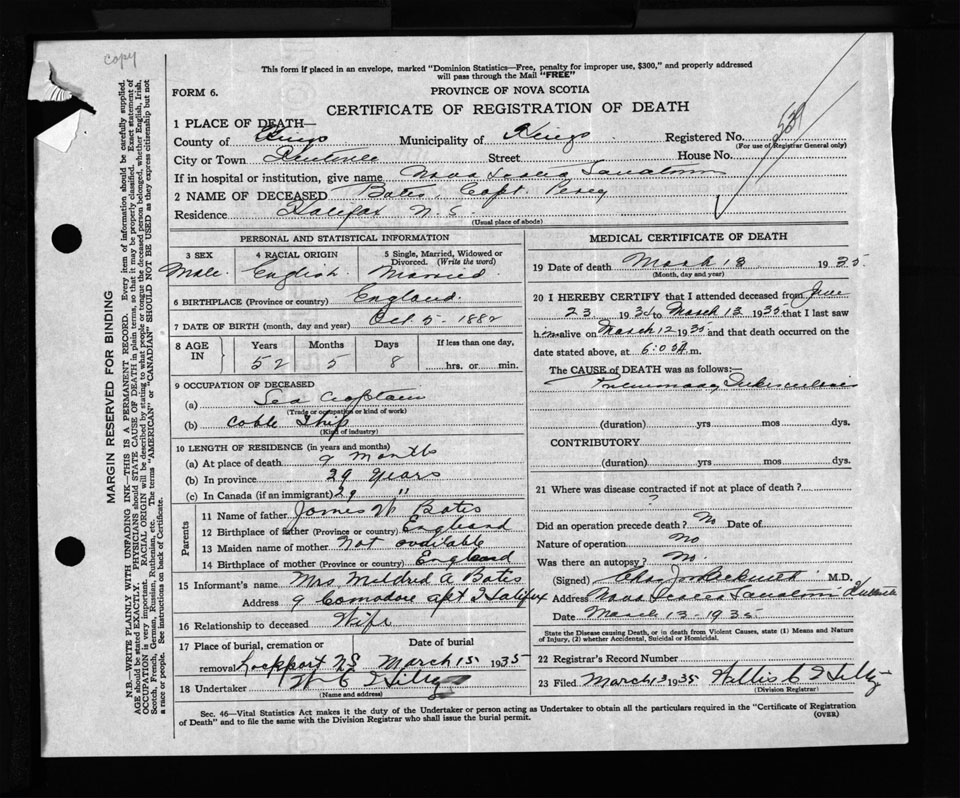 copy
This form if placed in an envelope, marked "Dominion Statistics—Free, penalty for improper use, $300," and properly addressed
will pass through the Mail "FREE"
FORM 6.
PROVINCE OF NOVA SCOTIA
CERTIFICATE OF REGISTRATION OF DEATH
1 PLACE OF DEATH—
County of Kings Municipality of Kings Registered No. 539
(For use of Registrar General only)
City or Town Kentville Street House No.
If in hospital or institution, give name Nova Scotia Sanatorium
2 NAME OF DECEASED Bates, Capt. Percy
Residence Halifax N. S.
(Usual place of abode)
PERSONAL AND STATISTICAL INFORMATION
3 SEX 4 RACIAL ORIGIN 5 Single, Married, Widowed or
Divorced. (Write the word)
Male. English. Married
6 BIRTHPLACE (Province or country) England.
7 DATE OF BIRTH (month, day and year) Oct 5 - 1882
8 AGE IN Years Months Days If less than one day,
52 5 8 hrs. or min.
9 OCCUPATION OF DECEASED
(a) Sea Captain
(Trade or occupation or kind of work)
(b) Cable Ship
(Kind of industry)
10 LENGTH OF RESIDENCE (in years and months)
(a) At place of death 9 months
(b) In province 29 years
(c) In Canada (if an immigrant) 29 "
Parents
11 Name of father James W Bates
12 Birthplace of father (Province or country) England
13 Maiden name of mother Not available
14 Birthplace of mother (Province or country) England
15 Informant's name Mrs Mildred A Bates
Address 9 Comodore Apt Halifax
16 Relationship to deceased Wife
17 Place of burial, cremation or Date of burial
removal Lockport NS March 15 1935
18 Undertaker W C
(Name and address)
MEDICAL CERTIFICATE OF DEATH
19 Date of death March 13 1935.
(Month, day and year)
20 I HEREBY CERTIFY that I attended deceased from June
23 1934 to March 13 1935 that I last saw
him alive on March 12 1935 and that death occurred on the
date stated above, at 6:05 A.m.
The CAUSE of DEATH was as follows:—
Pulmonary Tuberculosis
(duration) yrs mos dys.
CONTRIBUTORY
(duration) yrs. mos. dys.
21 Where was disease contracted if not at place of death?
?
Did an operation precede death? No Date of
Nature of operation No
Was there an autopsy? No.
(Signed) M.D.
Address Nova Scotia Sanatorium Kentville
Date March 13 - 1935
State the Disease causing Death, or in death from Violent Causes, state (1) Means and Nature
of Injury, (2) whether Accidental, Suicidal or Homicidal.
22 Registrar's Record Number
23 Filed March 13 1935 Willis C
(Division Registrar)
Sec. 46—Vital Statistics Act makes it the duty of the Undertaker or person acting as Undertaker to obtain all the particulars required in the "Certificate of Registration
of Death" and to file the same with the Division Registrar who shall issue the burial permit. (OVER)
MARGIN RESERVED FOR BINDING
N.B.—WRITE PLAINLY WITH UNFADING INK—THIS IS A PERMANENT RECORD. Every item of information should be carefully supplied.
AGE should be stated EXACTLY. PHYSICIANS should STATE CAUSE OF DEATH in plain terms, so that it may be properly classified. Exact statement of
OCCUPATION is very important. RACIAL ORIGIN will be described by stating to what people or tongue the deceased person belonged, whether English, Irish,
Scotch, French, German, Russian, Ruthenian, etc. The terms "AMERICAN" or "CANADIAN" SHOULD NOT BE USED as they express citizenship but not
a race or people. See instructions on back of Certificate.